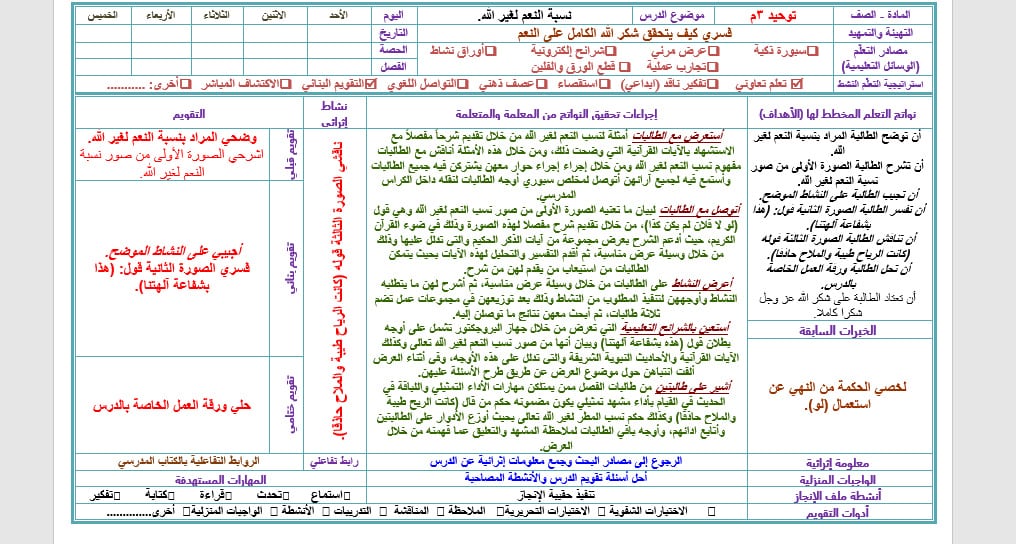 المادة - الصف	توحيد ٣م	موضوع الدرس	نسبة النعم لغير الله.	اليوم	الأحد	الاثنين	الثلاثاء	الأربعاء	الخميس
التهيئة والتمهيد	فسري كيف يتحقق شكر الله الكامل على النعم	التاريخ
مصادر التعلم	سبورة ذكية	عرض مرئي	شرائح إلكترونية	أوراق نشاط	الحصة
(الوسائل التعليمية)	تجارب عملية	قطع الورق والفلين	الفصل
استراتيجية التعلم النشط	تعلم تعاوني	تفكير ناقد (ابداعي)	الاستقصاء	عصف ذهني	التواصل اللغوي	التقويم البنائي	الاكتشاف المباشر	أخرى: ...........
نواتج التعلم المخطط لها (الأهداف)
أن توضح الطالبة المراد بنسبة النعم لغير
الله.
أن تشرح الطالبة الصورة الأولى من صور
نسبة النعم لغير الله.
أن تجيب الطالبة على النشاط الموضح.
أن تفسر الطالبة الصورة الثانية قول: (هذا
بشفاعة آلهتنا).
أن تناقش الطالبة الصورة الثالثة قوله
(كانت الرياح طيبة والملاح حاذقا).
أن تحل الطالبة ورقة العمل الخاصة
بالدرس.
أن تعتاد الطالبة على شكر الله عز وجل
شكرا كاملا.
الخبرات السابقة
لخصي الحكمة من النهي عن
استعمال (لو).
إجراءات تحقيق النواتج من المعلمة والمتعلمة
أستعرض مع الطالبات أمثلة لنسب النعم لغير الله من خلال تقديم شرحاً مفصلاً مع
الاستشهاد بالآيات القرآنية التي وضحت ذلك، ومن خلال هذه الأمثلة أناقش مع الطالبات
مفهوم نسب النعم لغير الله ومن خلال إجراء إجراء حوار معهن يشتركن فيه جميع الطالبات
وأستمع فيه لجميع آرائهن أتوصل لمخلص سبوري أوجه الطالبات لنقله داخل الكراس
المدرسي.
أتوصل مع الطالبات لبيان ما تعنيه الصورة الأولى من صور نسب النعم لغير الله وهي قول
(لو لا فلان لم يكن كذا)، من خلال تقديم شرح مفصلا لهذه الصورة وذلك في ضوء القرآن
الكريم، حيث أدعم الشرح بعرض مجموعة من آيات الذكر الحكيم والتى تدلل عليها وذلك
من خلال وسيلة عرض مناسبة، ثم أقدم التفسير والتحليل لهذه الآيات بحيث يتمكن
الطالبات من استيعاب من يقدم لهن من شرح.
أعرض النشاط على الطالبات من خلال وسيلة عرض مناسبة، ثم أشرح لهن ما يتطلبه
النشاط وأوجههن لتنفيذ المطلوب من النشاط وذلك بعد توزيعهن في مجموعات عمل تضم
ثلاثة طالبات، ثم أبحث معهن نتائج ما توصلن إليه.
أستعين بالشرائح التعليمية التي تعرض من خلال جهاز البروجكتور تشمل على أوجه
بطلان قول (هذه بشفاعة آلهتنا) وبيان أنها من صور نسب النعم لغير الله تعالى وكذلك
الآيات القرآنية والأحاديث النبوية الشريفة والتى تدلل على هذه الأوجه، وفى أثناء العرض
ألفت انتباهن حول موضوع العرض عن طريق طرح الأسئلة عليهن.
أشير على طالبتين من طالبات الفصل ممن يمتلكن مهارات الأداء التمثيلي واللباقة في
الحديث في القيام بأداء مشهد تمثيلي يكون مضمونه حكم من قال (كانت الريح طيبة
والملاح حاذقا) وكذلك حكم نسب المطر لغير الله تعالى بحيث أوزع الأدوار على الطالبتين
وأتابع ادائهم، وأوجه باقي الطالبات لملاحظة المشهد والتعليق عما فهمته من خلال
العرض.
نشاط
إثرائي
ناقشي الصورة الثالثة قوله (كانت الرياح طيبة والملاح حاذقا).
التقويم
تقويم قبلي
وضحي المراد بنسبة النعم لغير الله.
اشرحي الصورة الأولى من صور نسبة
النعم لغير الله.
تقويم بنائي
أجيبي على النشاط الموضح.
فسري الصورة الثانية قول: (هذا
بشفاعة آلهتنا).
تقويم ختامي
حلي ورقة العمل الخاصة بالدرس
معلومة إثرائية	الرجوع إلى مصادر البحث وجمع معلومات إثرائية عن الدرس	رابط تفاعلي	الروابط التفاعلية بالكتاب المدرسي
الواجبات المنزلية	أحل أسئلة تقويم الدرس والأنشطة المصاحبة	المهارات المستهدفة
أنشطة ملف الإنجاز	تنفيذ حقيبة الإنجاز	استماع	تحدث	قراءة	كتابة	تفكير
أدوات التقويم	الاختبارات الشفوية	الاختبارات التحريرية	الملاحظة	المناقشة	التدريبات	الأنشطة	الواجبات المنزلية	أخرى..............